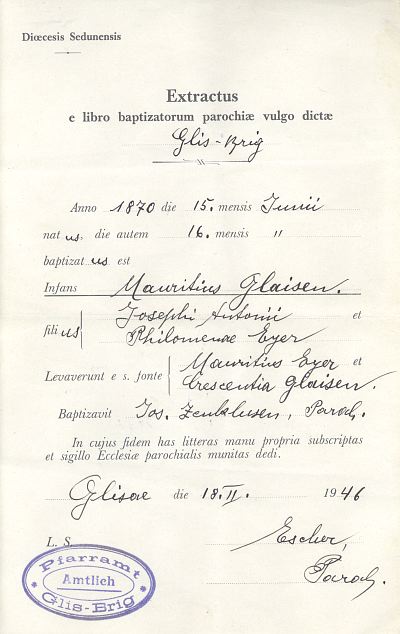 Diœcesis Sedunensis
Extractus
e libro baptizatorum parochiæ vulgo dictæ
Glis-Brig
Anno 1870 die 15. mensis Junii
nat us, die autem 16. mensis "
baptizat us est
Infans Mauritius Glaisen.
fili us Josephi Antonii et
Philomenae Eyer
Levaverunt e s. fonte Mauritius Eyer et
Crescentia Glaisen.
Baptizavit Jos. Zenklusen, Paroch.
In cujus fidem has litteras manu propria subscriptas
et sigillo Ecclesiæ parochialis munitas dedi.
Glisae die 18.II. 1946
L. S. Escher,
Paroch.
Pfarramt
Amtlich
Glis-Brig